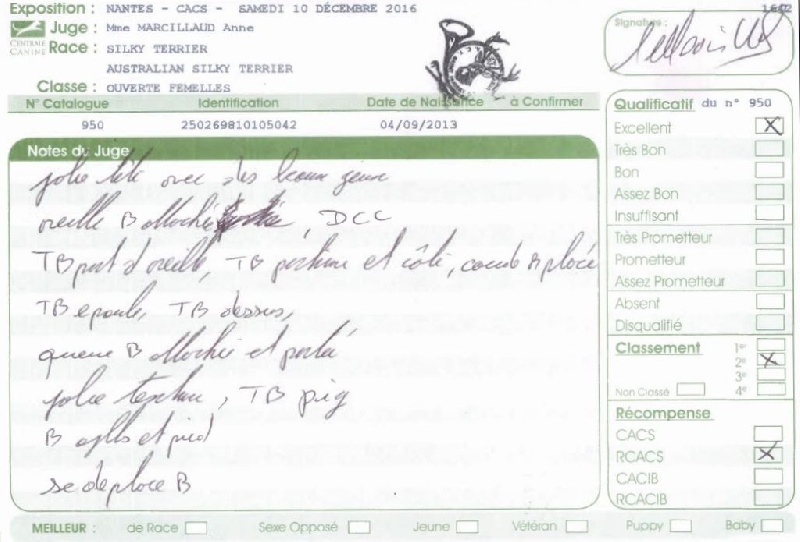 Exposition : NANTES - CACS - SAMEDI 10 DÉCEMBRE 2016
1642
CENTRALE CANINE
Juge : Mme MARCILLAUD Anne
Race : SILKY TERRIER
AUSTRALIAN SILKY TERRIER
Classe : OUVERTE FEMELLES
Signature :
N° Catalogue Identification Date de Naissance à Confirmer
950 250269810105042 04/09/2013
Notes du Juge
jolie tête avec des beaux yeux
oreille B attachée DCC
TB port d'oreille TB poitrine et côté, coude en place
TB epaule, TB dessus,
queue B attaché et porté
jolie texture, TB pig
B aplbs et pied
se deplace B
Qualificatif du n° 950
Excellent X
Très Bon
Bon
Assez Bon
Insuffisant
Très Prometteur
Prometteur
Assez Prometteur
Absent
Disqualifié
Classement
1°
2° X
3°
Non Classé 4°
Récompense
CACS
RCACS X
CACIB
RCACIB
MEILLEUR : de Race Sexe Opposé Jeune Vétéran Puppy Baby